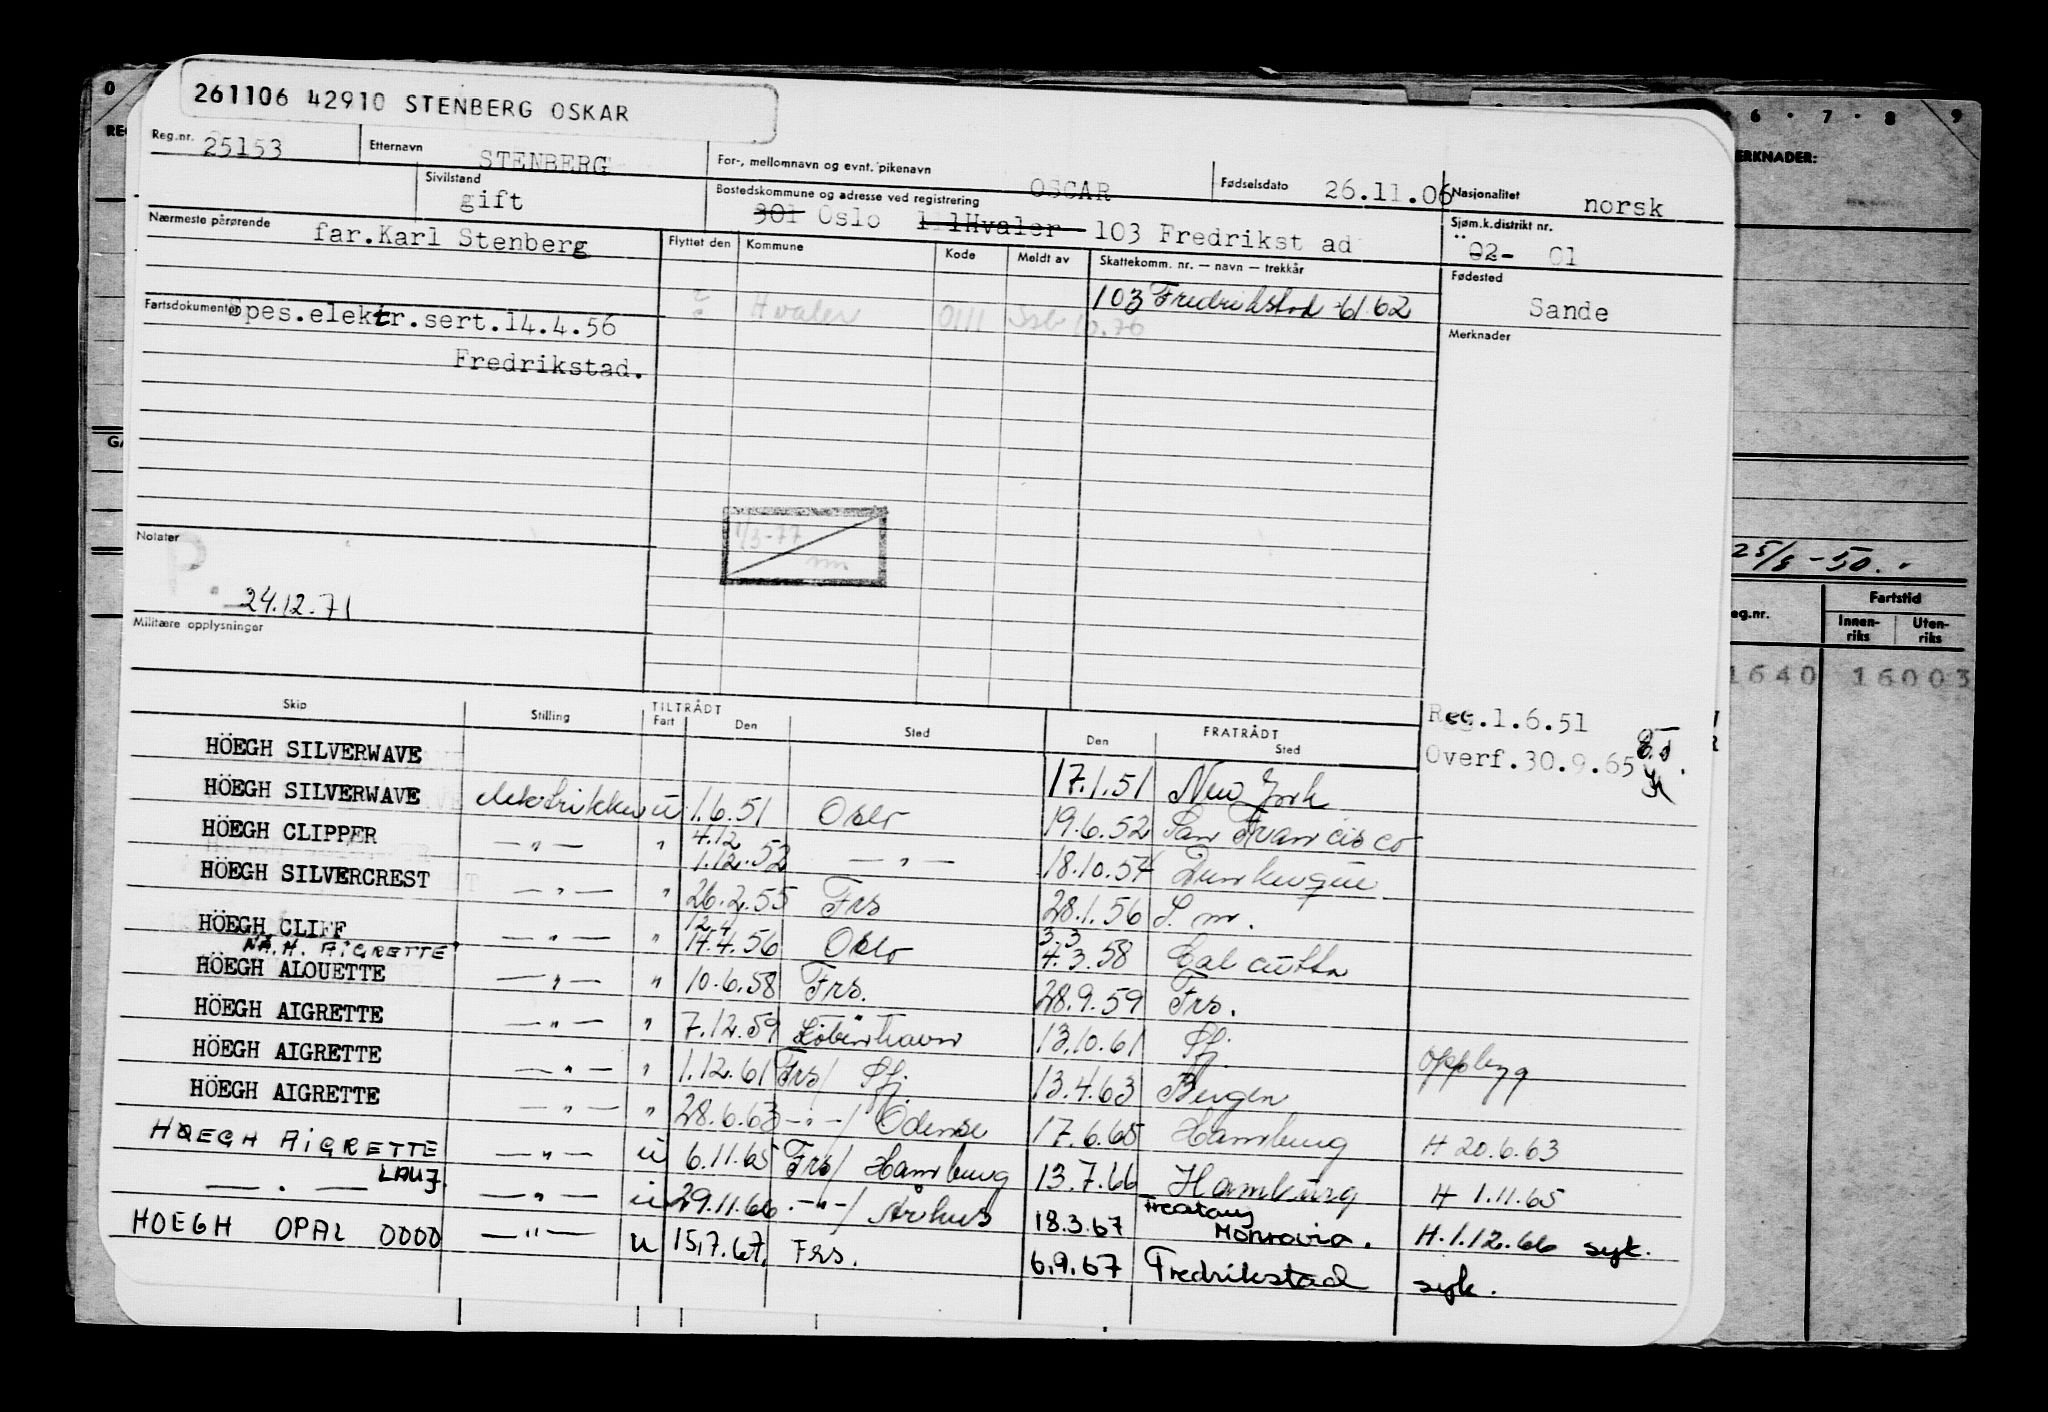 261106 42910 STENBERG OSKAR
Reg.nr. 25153 Etternavn STENBERG For-, mellomnavn og evnt. pikenavn OSCAR Fødselsdato 26.11.06 Nasjonalitet norsk
Sivilstand gift Bostedskommune og adresse ved registrering 301 Oslo 111Hvaler 103 Fredrikstad Sjøm.k.distrikt nr. 02- 01
Nærmeste pårørende far.Karl Stenberg Flyttet den Kommune Kode Meldt av Skattekomm. nr. — navn — trekkår Fødested Sande
Hvaler 0111 103 Fredrikstad 61 62
Fartsdokumenter Spes.elektr.sert.14.4.56
Fredrikstad.
Merknader
1/3-77
Notater P.
24.12.71
Militære opplysninger
Skip Stilling TILTRÅDT Fart Den Sted FRATRÅDT Den Sted
Reg.1.6.51
Overf.30.9.65
HÖEGH SILVERWAVE 17.1.51 New York
HÖEGH SILVERWAVE elektriker u 1.6.51 Oslo 19.6.52 San Francisco
HÖEGH CLIPPER —"— " 4.12 1.12.52 —"— 18.10.54 Dunkerque
HÖEGH SILVERCREST —"— " 26.2.55 Frs 28.1.56 S.m.
HÖEGH CLIFF —"— " 12.4 14.4.56 Oslo 3.3 4.3.58 Calcutta
NÅ. H. AIGRETTE
HÖEGH ALOUETTE —"— " 10.6.58 Frs. 28.9.59 Frs.
HÖEGH AIGRETTE —"— " 7.12.59 København 13.10.61 Sfj oppbygg
HÖEGH AIGRETTE —"— " 1.12.61 Frs/ Sfj. 13.4.63 Bergen
HÖEGH AIGRETTE —"— " 28.6.63 —"—/ Odense 17.6.65 Hamburg H 20.6.63
HØEGH AIGRETTE —"— u 6.11.65 Frs/ Hamburg 13.7.66 Hamburg H 1.11.65
— " — LAUJ. —"— u 29.11.66 —"—/ Århus 18.3.67 Monrovia. H.1.12.66 syk.
HOEGH OPAL 0000 —"— u 15.7.67. Frs. 6.9.67 Fredrikstad syk.
6 · 7 · 8 9
ERKNADER:
25/8 -50.
eg.nr. Fartstid
Innen-riks Uten-riks
1640 16003